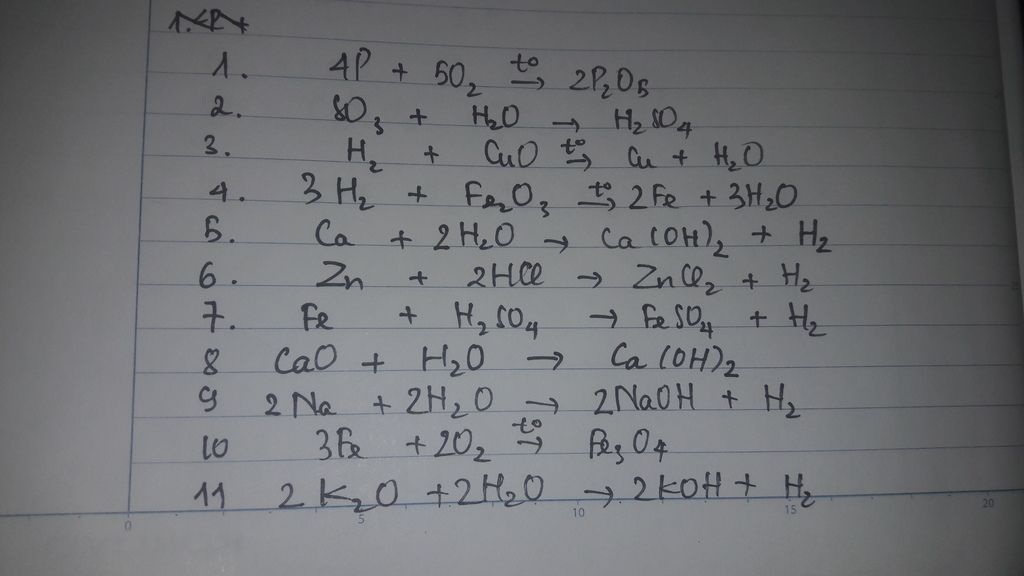 1. 4P + 5O₂ t°→ 2P₂O₅
2. SO₃ + H₂O → H₂SO₄
3. H₂ + CuO t°→ Cu + H₂O
4. 3H₂ + Fe₂O₃ t°→ 2Fe + 3H₂O
5. Ca + 2H₂O → Ca(OH)₂ + H₂
6. Zn + 2HCl → ZnCl₂ + H₂
7. Fe + H₂SO₄ → FeSO₄ + H₂
8 CaO + H₂O → Ca(OH)₂
9 2Na + 2H₂O → 2NaOH + H₂
10 3Fe + 2O₂ t°→ Fe₃O₄
11 2K₂O + 2H₂O → 2KOH + H₂
0 5 10 15 20